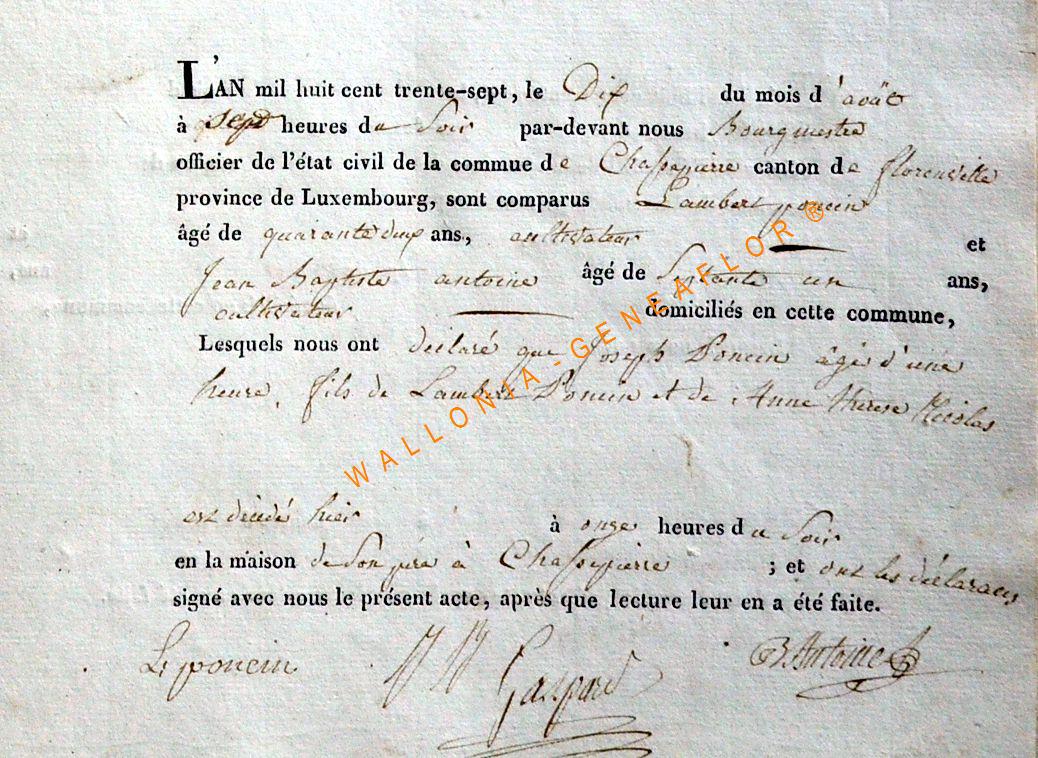 L'AN mil huit cent trente-sept, le Dix du mois d'août
à sept heures du Soir par-devant nous Bourgmestre
officier de l'état civil de la commue de Chassepierre canton de florenville
province de Luxembourg, sont comparus Lambert poncin
âgé de quarante deux ans, cultivateur et
Jean Baptiste antoine âgé de Septante un ans,
cultivateur domiciliés en cette commune,
Lesquels nous ont déclaré que Joseph Poncin âgé d'une
heure, fils de Lambert Poncin et de Anne therese Nicolas
est décédé hier à onze heures du Soir
en la maison de Son père à Chassepierre ; et ont les déclarans
signé avec nous le présent acte, après que lecture leur en a été faite.
L poncin Gaspard B. Antoine
WALLONIA-GENEAFLOR ®